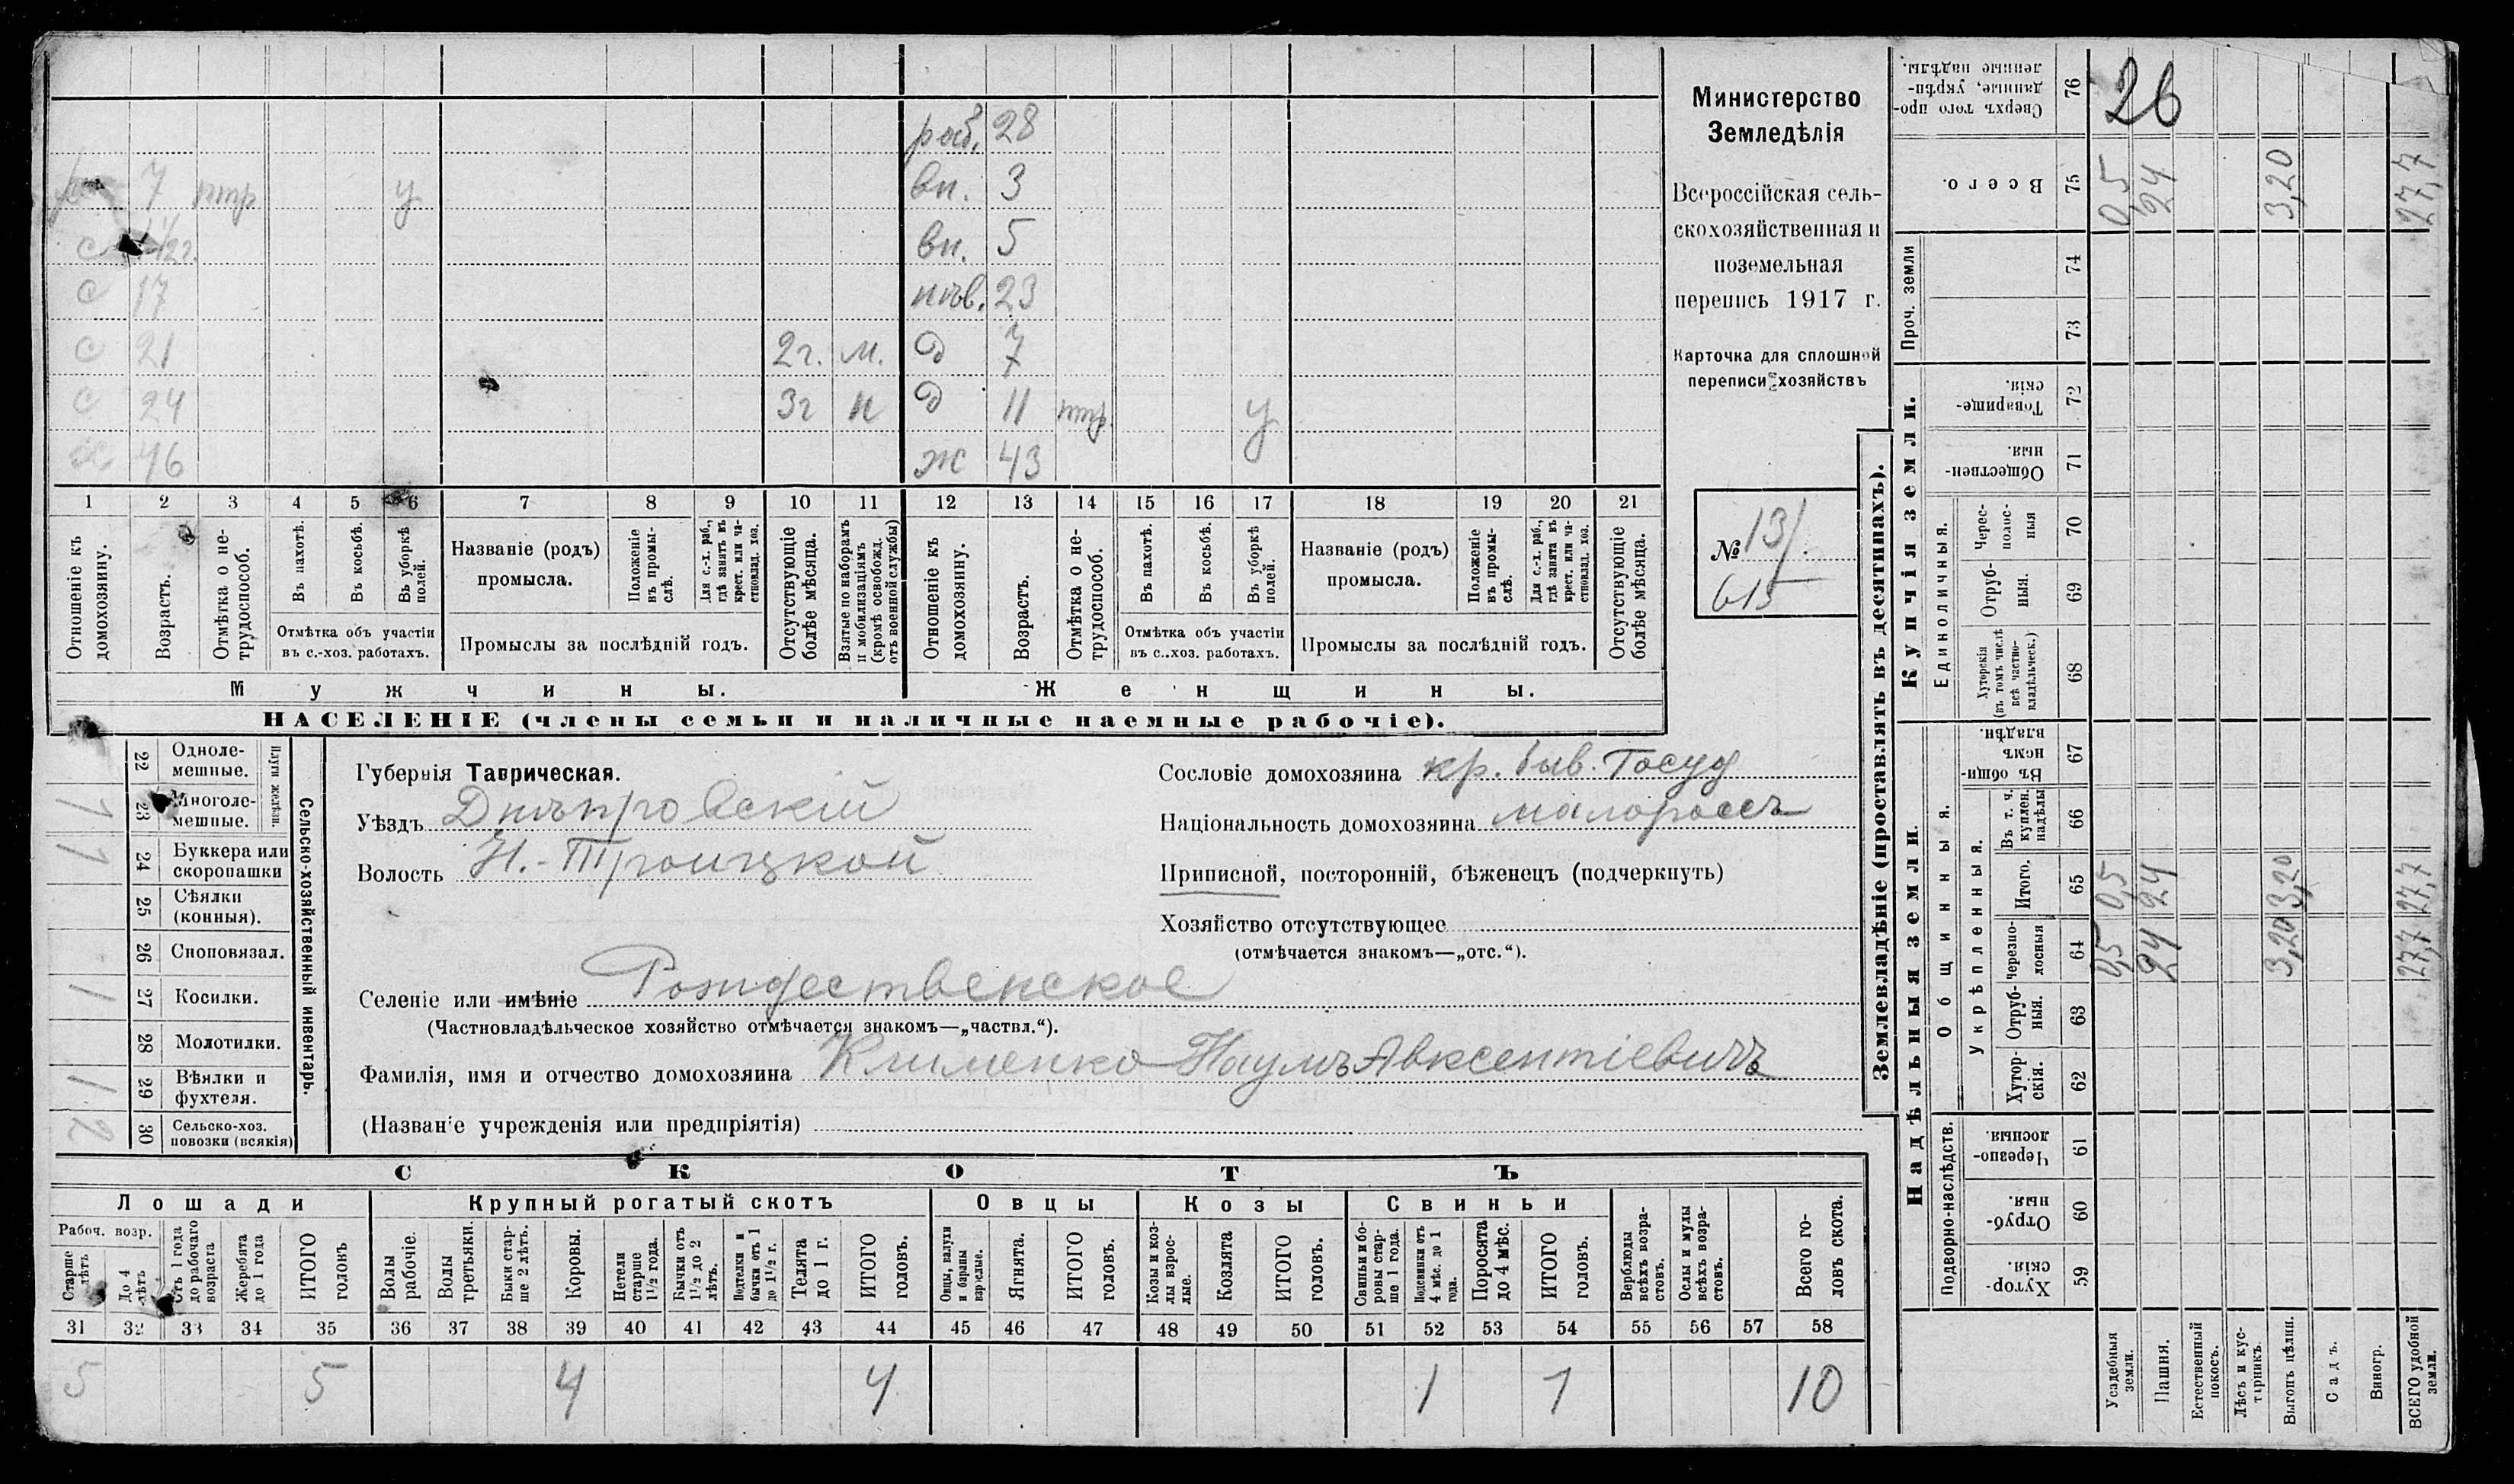 раб. 28
7 нтр у вн. 3
с 1 1/2 г. вн. 5
с 17 ньв. 23
с 21 2 г. м. д 7
с 24 3 г н д 11 нтр. у
х 46 ж 43
1 2 3 4 5 6 7 8 9 10 11 12 13 14 15 16 17 18 19 20 21
Отношеніе къ домохозяину.
Возрастъ.
Отмѣтка о не-трудоспособ.
Въ пахотѣ.
Въ косьбѣ.
Въ уборкѣ полей.
Отмѣтка объ участіи
въ с.-хоз. работахъ.
Названіе (родъ)
промысла.
Положеніе въ промы-слѣ.
Для с.-х. раб., гдѣ занятъ въ крест. или ча-стновлад. хоз.
Промыслы за послѣдній годъ.
Отсутствующіе болѣе мѣсяца.
Взятые по наборамъ и мобилизаціямъ (кромѣ освобожд. отъ военной службы)
Отношеніе къ домохозяину.
Возрастъ.
Отмѣтка о не-трудоспособ.
Въ пахотѣ.
Въ косьбѣ.
Въ уборкѣ полей.
Отмѣтка объ участіи
въ с.-хоз. работахъ.
Названіе (родъ)
промысла.
Положеніе въ промы-слѣ.
Для с.-х. раб., гдѣ занята въ крест. или ча-стновлад. хоз.
Промыслы за послѣдній годъ.
Отсутствующіе болѣе мѣсяца.
Мужчины. Женщины.
НАСЕЛЕНІЕ (члены семьи и наличные наемные рабочіе).
Министерство
Земледѣлія
Всероссійская сель-
скохозяйственная и
поземельная
перепись 1917 г.
Карточка для сплошной
переписи хозяйствъ
№ 131.
615
Сельско-хозяйственный инвентарь.
Плуги желѣзн.
22 Одноле-мешные.
1 23 Многоле-мешные.
1 24 Буккера или скоропашки
25 Сѣялки (конныя).
26 Сноповязал.
1 27 Косилки.
28 Молотилки.
1 29 Вѣялки и фухтеля.
2 30 Сельско-хоз. повозки (всякія)
Губернія Таврическая.
Уѣздъ Днѣпровскій
Волость Н.-Троицкой
Сословіе домохозяина кр. быв. Госуд
Національность домохозяина малороссъ
Приписной, посторонній, бѣженецъ (подчеркнуть)
Хозяйство отсутствующее
(отмѣчается знакомъ—„отс.“).
Селеніе или имѣніе Рождественское
(Частновладѣльческое хозяйство отмѣчается знакомъ—„частвл.“).
Фамилія, имя и отчество домохозяина Клименко Наумъ Авксентіевичъ
(Названіе учрежденія или предпріятія)
СКОТЪ
Лошади Крупный рогатый скотъ Овцы Козы Свиньи
Рабоч. возр.
Старше 4 лѣтъ
До 4 лѣтъ
Отъ 1 года до рабочаго возраста
Жеребята до 1 года
ИТОГО головъ
Волы рабочіе.
Волы третьяки.
Быки стар-ше 2 лѣтъ.
Коровы.
Нетели старше 1½ года.
Бычки отъ 1½ до 2 лѣтъ.
Подтелки и бычки отъ 1 до 1½ г.
Телята до 1 г.
ИТОГО головъ.
Овцы, валухи и бараны взрослые.
Ягнята.
ИТОГО головъ.
Козы и коз-лы взрос-лые.
Козлята
ИТОГО головъ.
Свиньи и бо-ровы стар-ше 1 года.
Подсвинки отъ 4 мѣс. до 1 года.
Поросята до 4 мѣс.
ИТОГО головъ.
Верблюды всѣхъ возра-стовъ.
Ослы и мулы всѣхъ возра-стовъ.
Всего го-ловъ скота.
31 32 33 34 35 36 37 38 39 40 41 42 43 44 45 46 47 48 49 50 51 52 53 54 55 56 57 58
5 5 4 4 1 1 10
Землевладѣніе (проставлять въ десятинахъ).
Купчія земли.
Надѣльныя земли.
Проч. земли
Единоличныя.
Общинныя.
Укрѣпленныя.
Подворно-наслѣдств.
76 Сверхъ того про-данные, укрѣп-ленные надѣлы. 26
75 Всего. 0,5 24 3,20 27,7
74
73
72 Товарище-скія.
71 Обществен-ныя.
70 Черес-полос-ныя
69 Отруб-ныя.
68 Хуторскія (въ томъ числѣ всѣ частно-владѣльческ.)
67 Въ общи-номъ владѣн.
66 Въ т. ч. куплен. надѣлы
65 Итого. 0,5 24 3,20 27,7
64 Черезпо-лосныя 0,5 24 3,20 27,7
63 Отруб-ныя.
62 Хутор-скія.
61 Черезпо-лосныя.
60 Отруб-ныя.
59 Хутор-скія.
Усадебныя земли.
Пашня.
Естественный покосъ.
Лѣсъ и кус-тарникъ.
Выгонъ цѣлин.
Садъ.
Виногр.
ВСЕГО удобной земли.